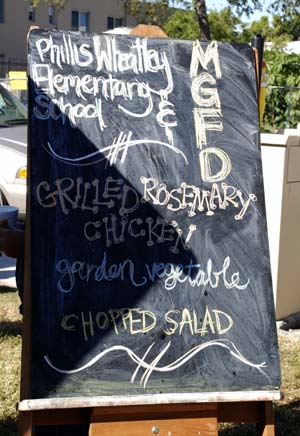 Phillis Wheatley
Elementary
School &
MGFD
GRILLED ROSEMARY
CHICKEN
garden vegetable
CHOPPED SALAD